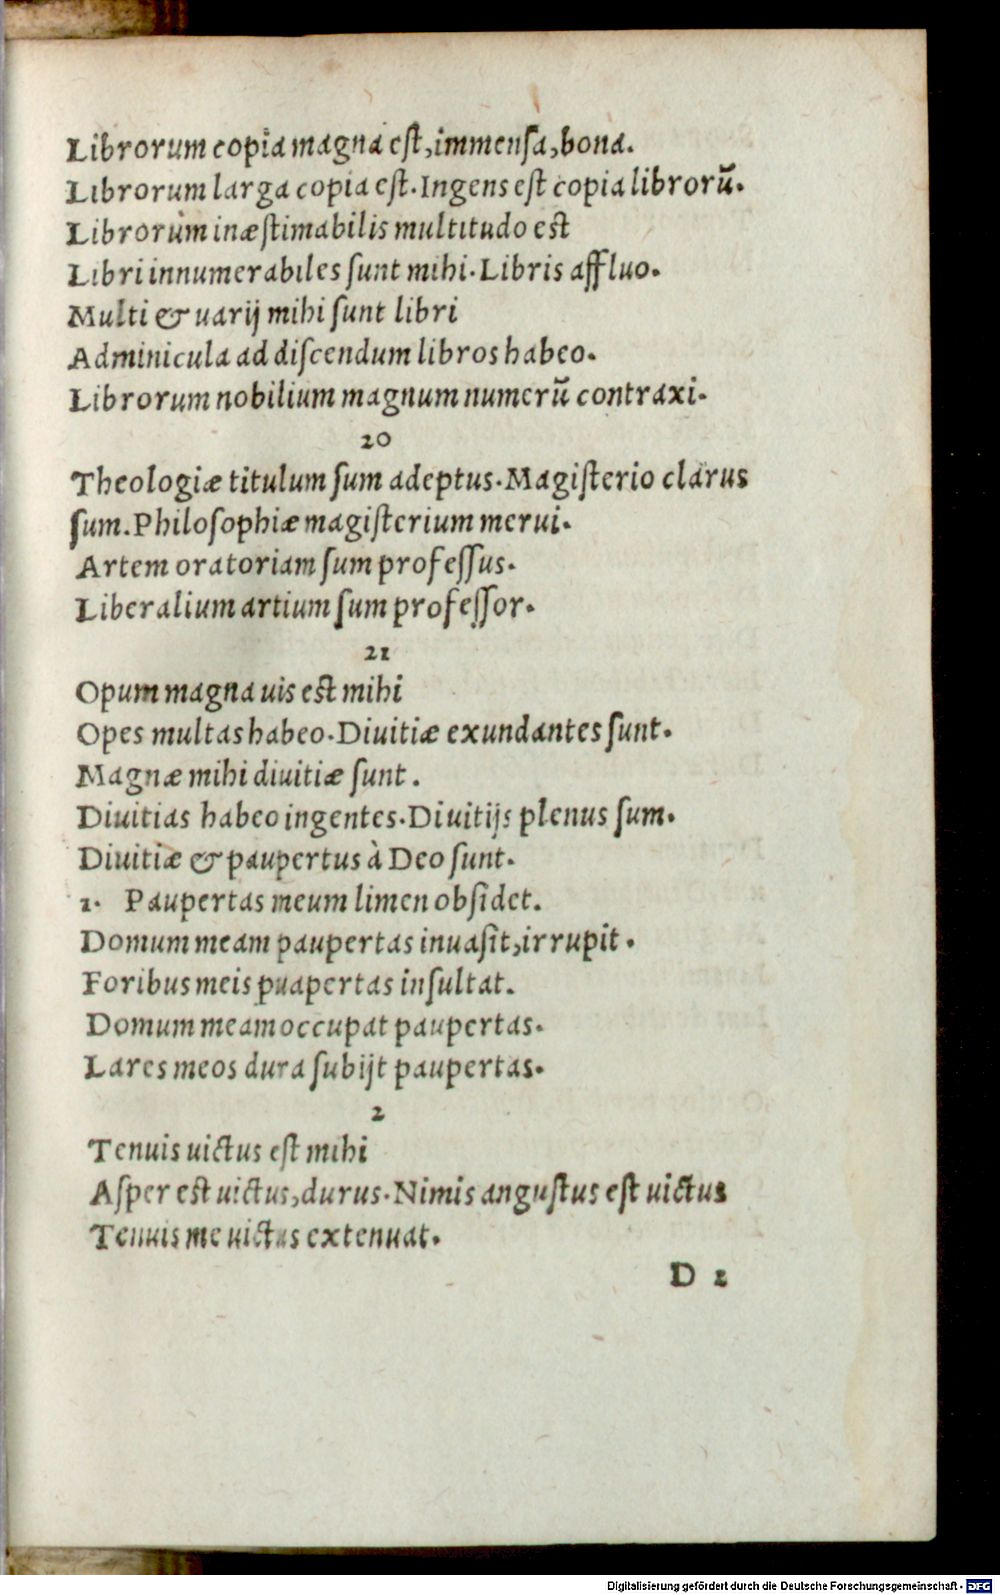 Librorum copia magna eſt, immenſa, bona.
Librorum larga copia eſt. Ingens eſt copia librorũ.
Librorum inæſtimabilis multitudo eſt
Libri innumerabiles ſunt mihi. Libris affluo.
Multi & uarij mihi ſunt libri
Adminicula ad diſcendum libros habeo.
Librorum nobilium magnum numerũ contraxi.
20
Theologiæ titulum ſum adeptus. Magiſterio clarus
ſum. Philoſophiæ magiſterium merui.
Artem oratoriam ſum profeſſus.
Liberalium artium ſum profeſſor.
21
Opum magna uis eſt mihi
Opes multas habeo. Diuitiæ exundantes ſunt.
Magnæ mihi diuitiæ ſunt.
Diuitias habeo ingentes. Diuitijs plenus ſum.
Diuitiæ & paupertus à Deo ſunt.
1. Paupertas meum limen obſidet.
Domum meam paupertas inuaſit, irrupit.
Foribus meis puapertas inſultat.
Domum meam occupat paupertas.
Lares meos dura ſubijt paupertas.
2
Tenuis uictus eſt mihi
Aſper eſt uictus, durus. Nimis anguſtus eſt uictus
Tenuis me uictus extenuat.
D 2
Digitalisierung gefördert durch die Deutsche Forschungsgemeinschaft - DFG